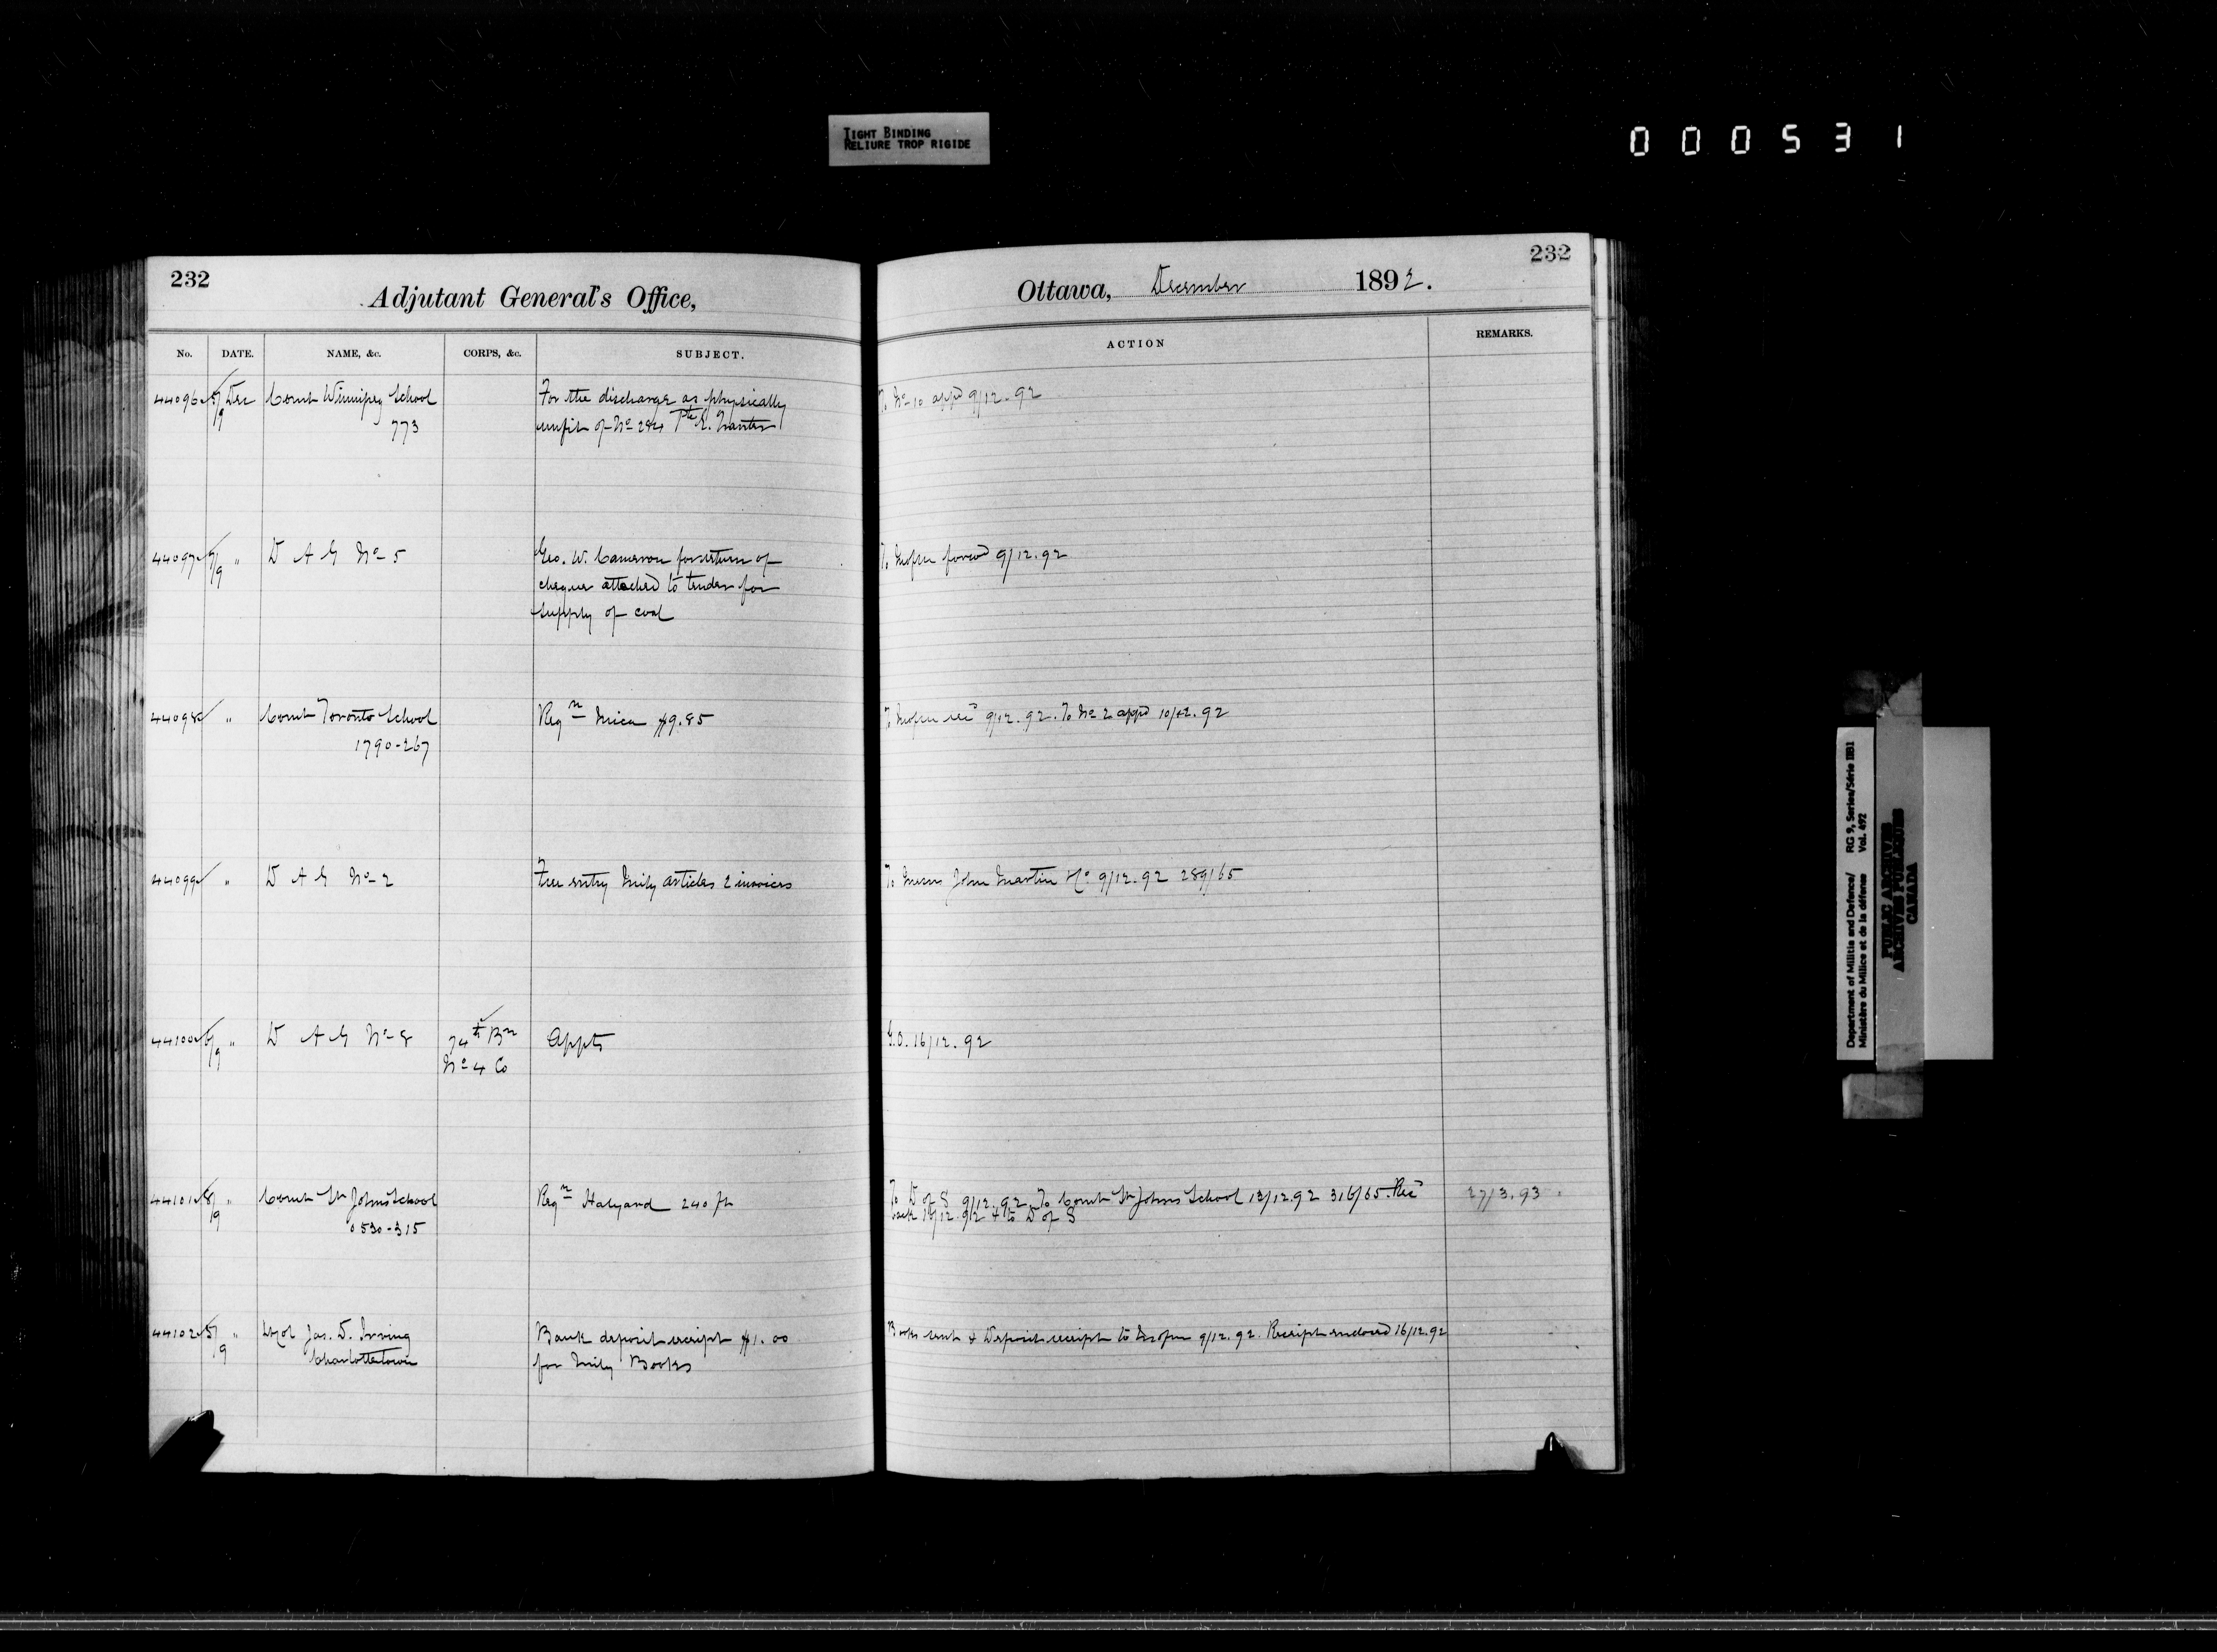 TIGHT BINDING
RELIURE TROP RIGIDE
000531
232
Adjutant General's Office,
No. DATE. NAME, &c. CORPS, &c. SUBJECT.
44096 5/9 Dec Comt Winnipeg School For the discharge as physically
773 unfit of No 284 Pte E.
44097 7/9 " D A G No 5 Geo. W. Cameron for return of
cheque attached to tender for
supply of coal
44098 " Comt Toronto School Reqn Mica $9.85
1790-267
44099 " D A G No 2 Free entry Mily articles 2 invoices
44100 6/9 " D A G No 8 74th Bn Appts
No 4 Co
44101 8/9 " Comt St Johns School Reqn Halyard 240 ft
0530-315
44102 5/9 " Jas. D. Irving Bank deposit receipt $1.00
Charlottetown for Mily Books
232
Ottawa, December 1892.
ACTION REMARKS.
To No 10 appd 9/12.92
To forwd 9/12.92
To rec 9/12.92. To No 2 appd 10/12.92
To Messrs John Martin & Co 9/12.92 289/65
G.O. 16/12.92
To D of S 9/12.92 To Comt St Johns School 13/12.92 316/65. Rec 27/3.93
back 19/12.92 & to D of S
Books sent & Deposit receipt to 9/12.92. Receipt enclosed 16/12.92
Department of Militia and Defence/ RG 9, Series/Série IIB1
Ministère du Milice et de la défense Vol. 492
PUBLIC ARCHIVES
ARCHIVES PUBLIQUES
CANADA